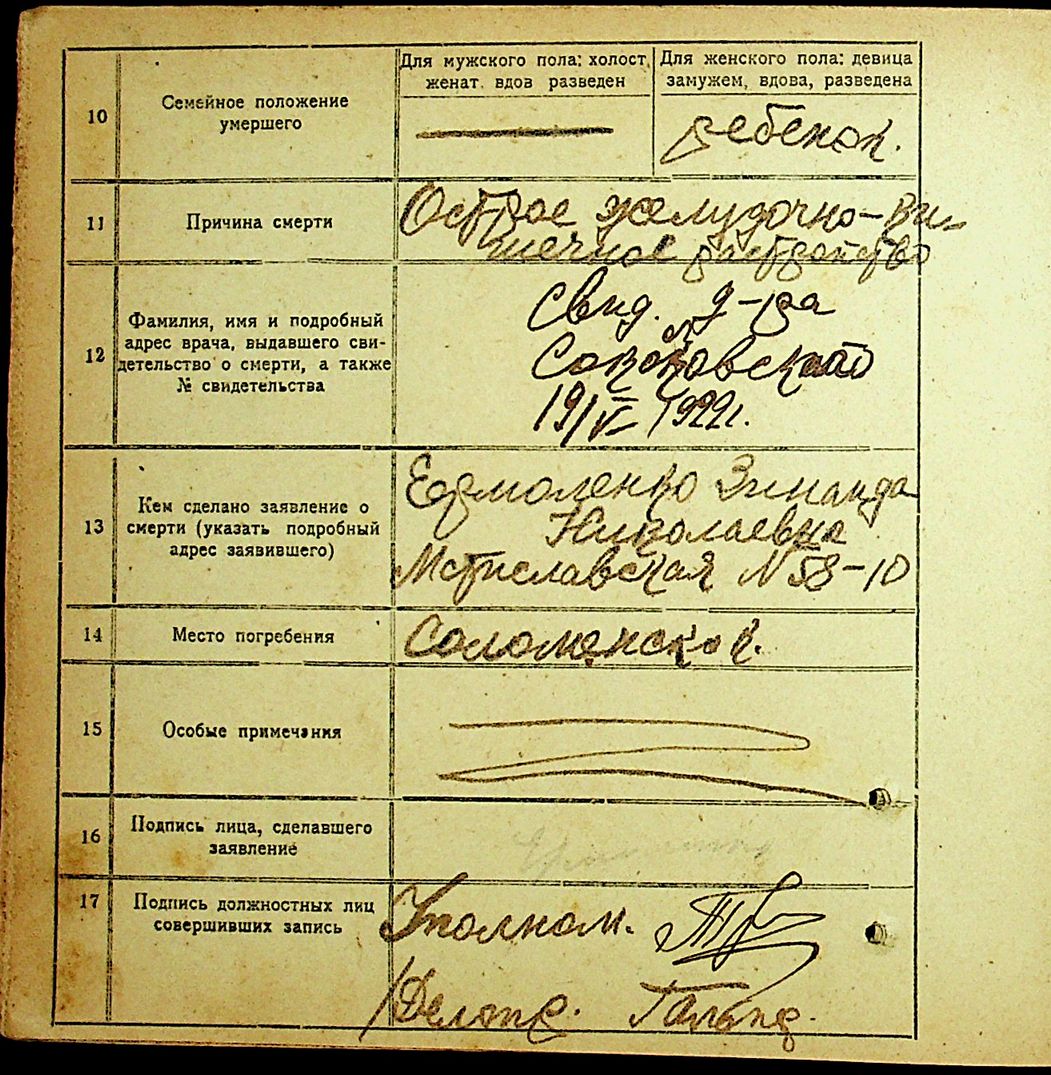 10
Семейное положение
умершего
Для мужского пола: холост,
женат. вдов разведен
Для женского пола: девица
замужем, вдова, разведена
ребенок.
11
Причина смерти
Острое желудочно-ки-
шечное растройство
12
Фамилия, имя и подробный
адрес врача, выдавшего сви-
детельство о смерти, а также
№ свидетельства
Свид. д-ра
19/V 1922г.
13
Кем сделано заявление о
смерти (указать подробный
адрес заявившего)
Ермоленко Зинаида
Николаевна
Мстиславская N 58-10
14
Место погребения
Соломенское.
15
Особые примечания
16
Подпись лица, сделавшего
заявление
17
Подпись должностных лиц
совершивших запись
Уполном.
Делопр.